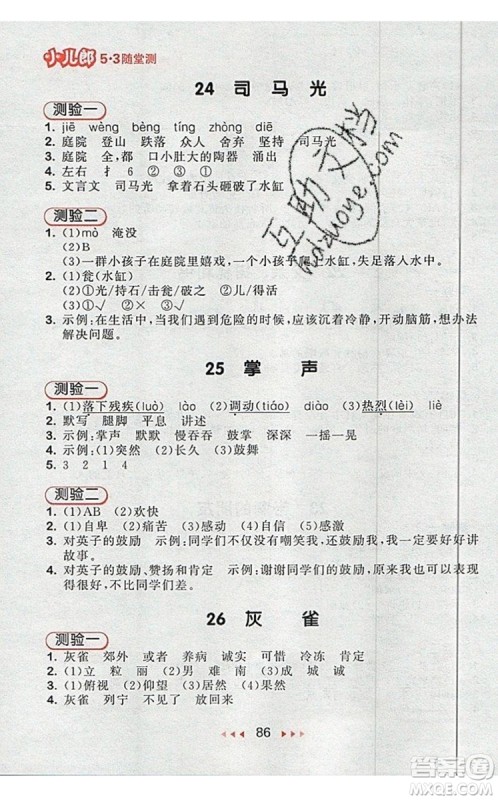 小儿郎 5·3随堂测
24 司马光
测验一
1. jiē wèng bèng tíng zhòng diē
2. 庭院 登山 跌落 众人 舍弃 坚持 司马光
3. 庭院 全,都 口小肚大的陶器 涌出
4. 左右 扌 6 ② ③ ①
5. 文言文 司马光 拿着石头砸破了水缸
测验二
1. (1)mò 淹没
(2)B
(3)一群小孩子在庭院里嬉戏,一个小孩子爬上水缸,失足落人水中。
2. (1)瓮(水缸)
(2)①光/持石/击瓮/破之 ②儿/得活
(3)①√ ③√
3. 示例:在生活中,当我们遇到危险的时候,应该沉着冷静,开动脑筋,想办法
解决问题。
25 掌声
测验一
1. (1)落下残疾(luò) lào (2)调动(tiáo) diào (3)热烈(lèi) liè
2. 默写 腿脚 平息 讲述
3. 示例:掌声 默默 慢吞吞 鼓掌 深深 一摇一晃
4. 示例:(1)突然 (2)长久 (3)示例:(4)鼓舞
5. 3 2 1 4
测验二
1. (1)AB (2)欢快
2. (1)自卑 (2)痛苦 (3)感动 (4)自信 (5)感激
3. 对英子的鼓励 示例:同学们不仅没有嘲笑我,还鼓励我,我更要好好讲
故事。
4. 对英子的鼓励、赞扬和肯定 示例:谢谢同学们的鼓励,今天我可以表现
得很好,不比同学们差。
26 灰雀
测验一
1. 灰雀 郊外 或者 养病 诚实 可惜 冷冻 肯定
2. (1)立 粒 丽 (2)男 难 南 (3)成 城 诚
3. (1)俯视 (2)仰望 (3)居然 (4)果然
4. 灰雀 列宁 不见了 放回来
86
互助文档
hdzuoye.com
答案圈
MXQE.COM